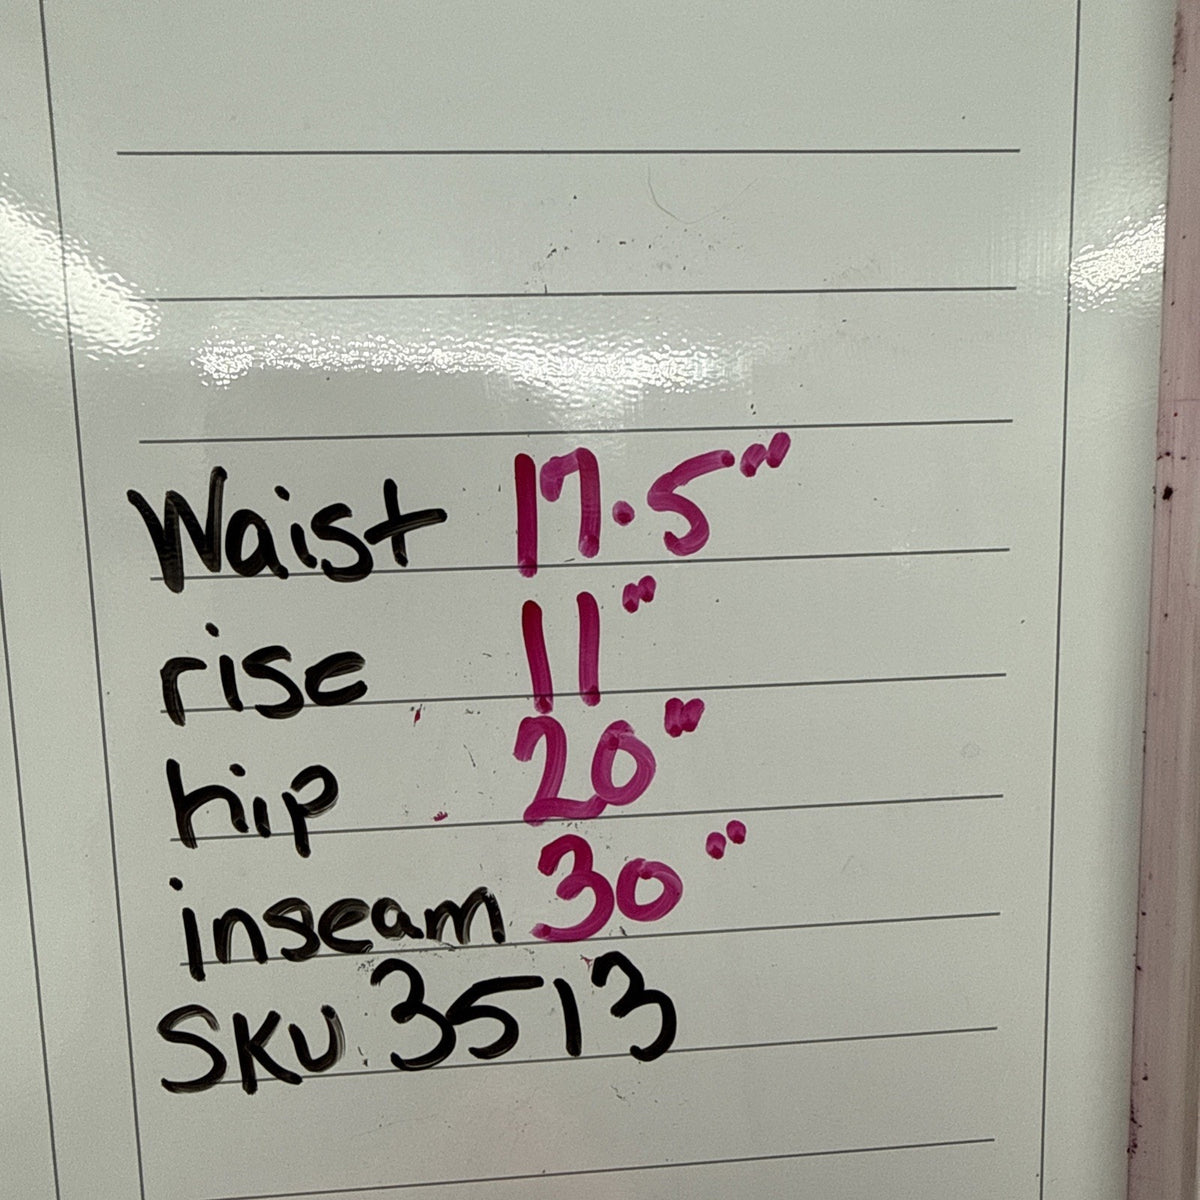 Waist 17.5"
rise 11"
hip 20"
inseam 30"
SKU 3513